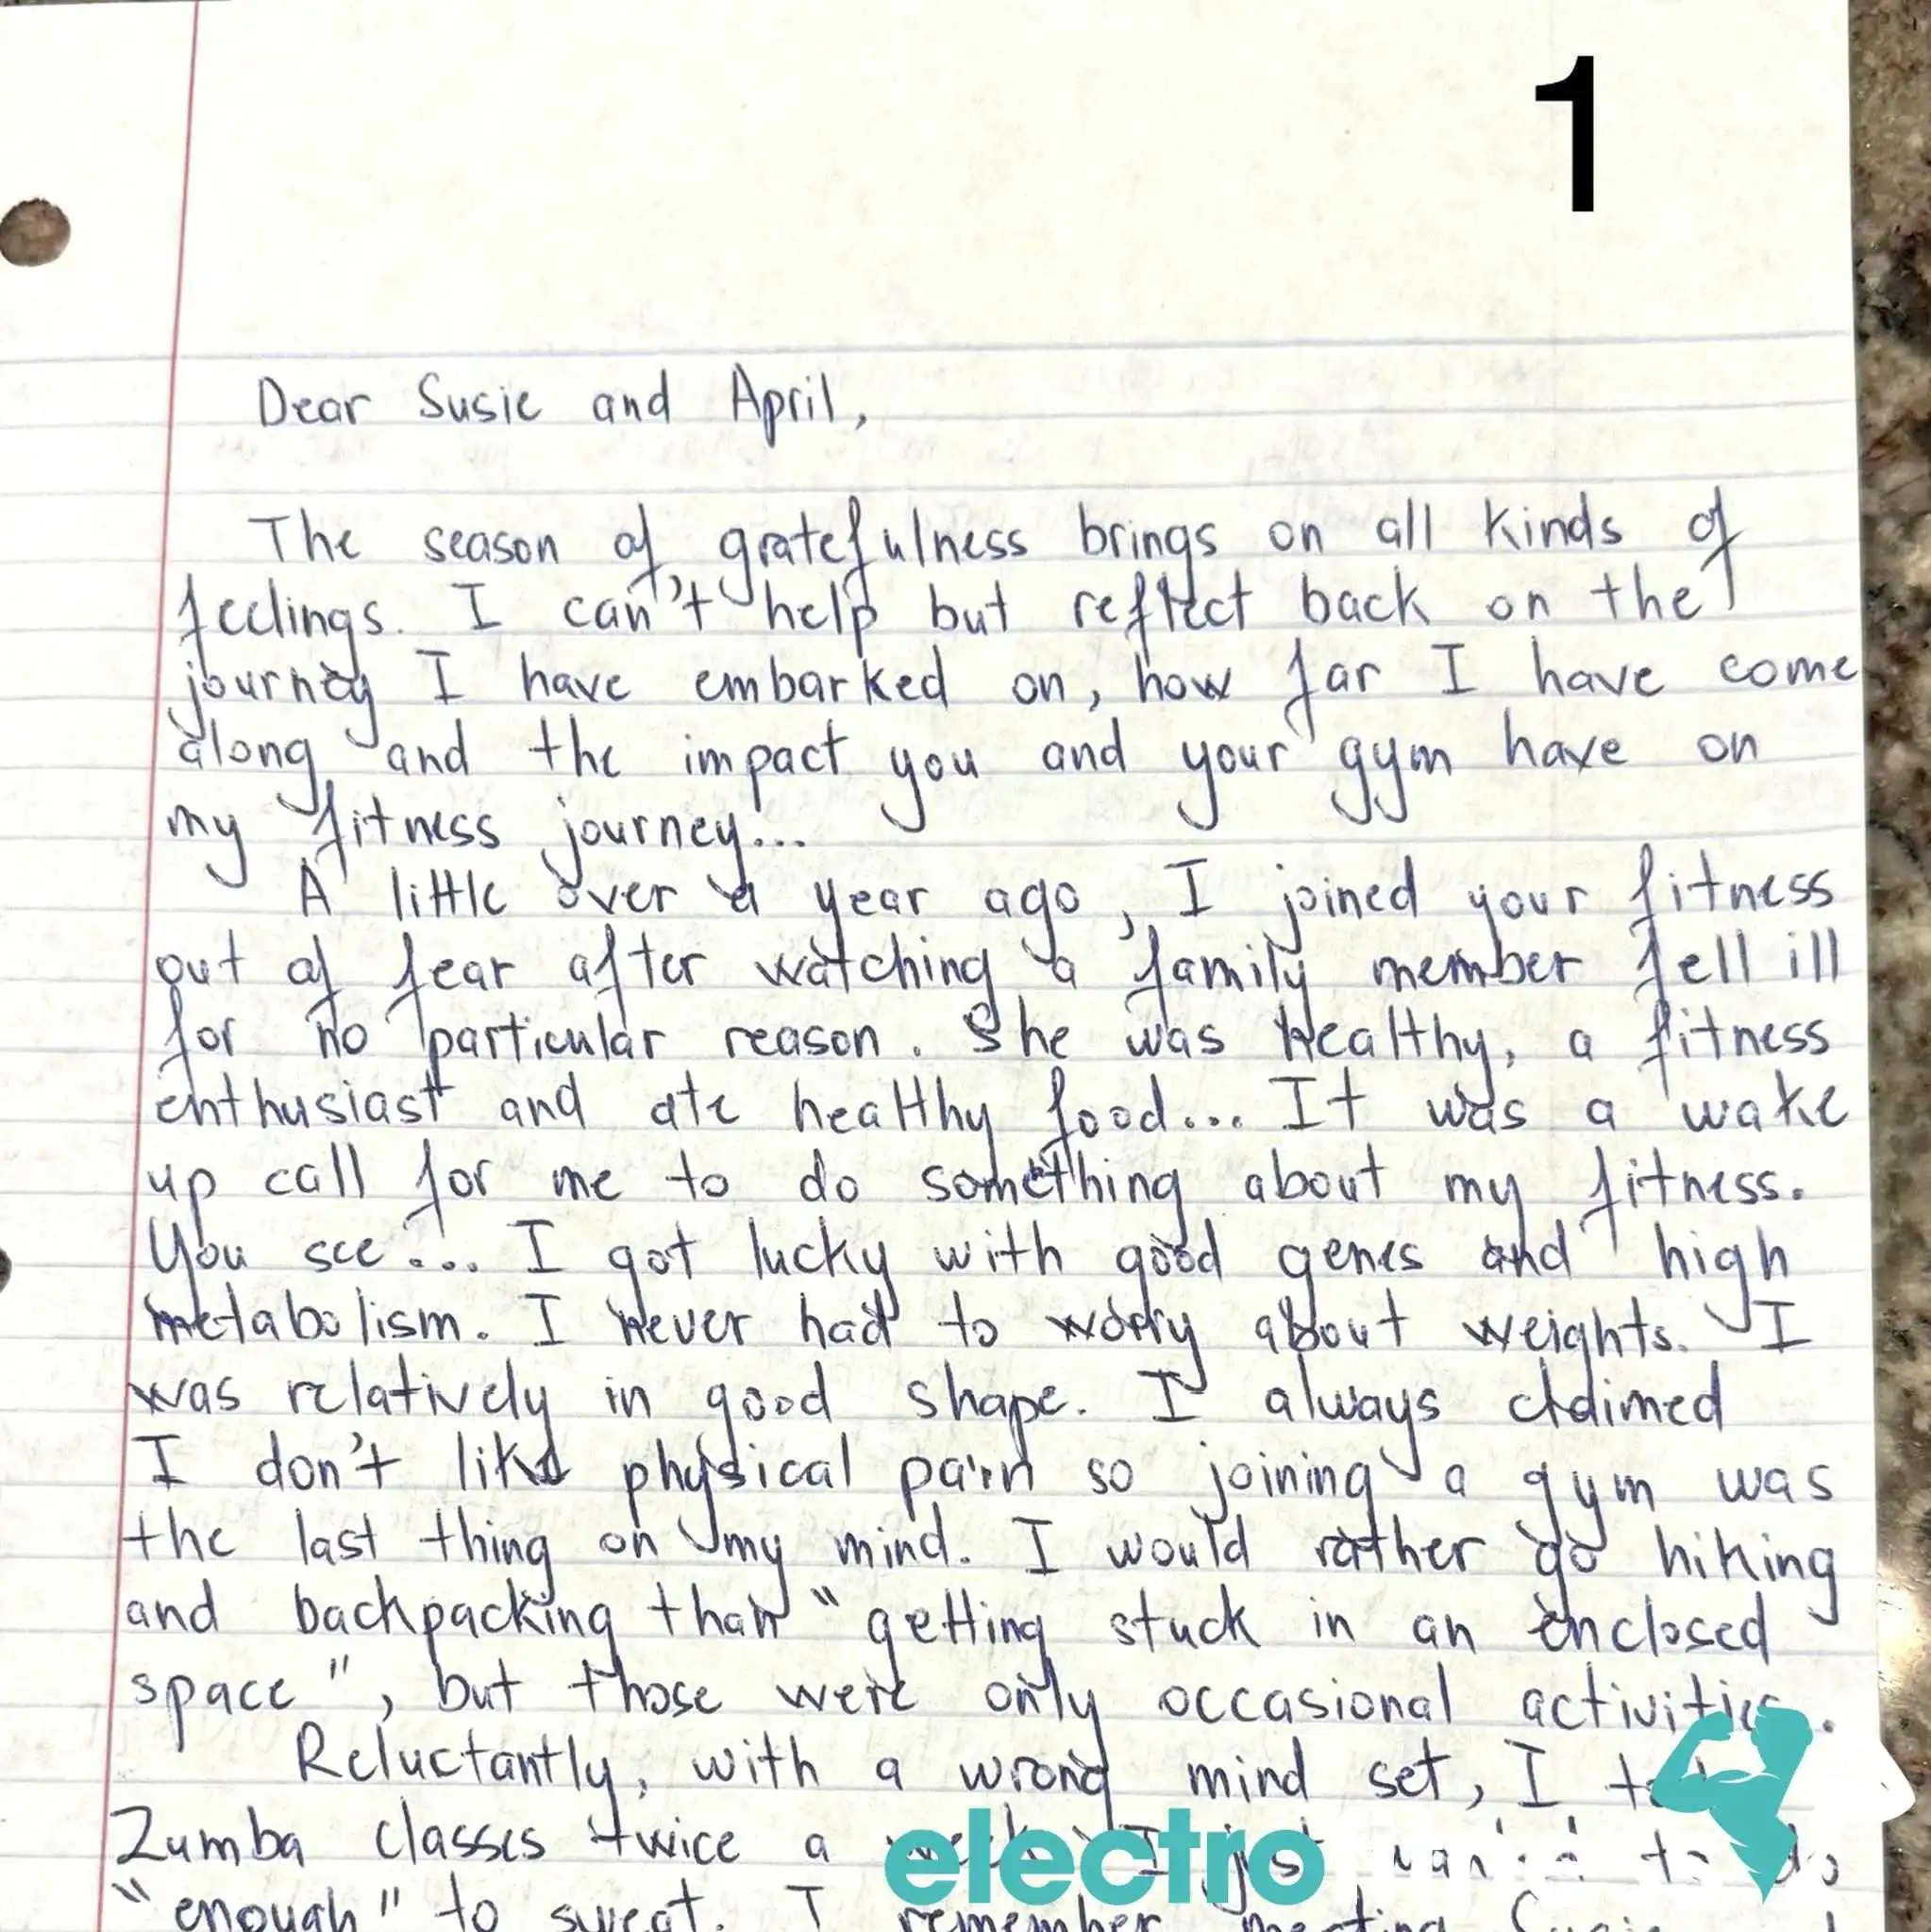 1
Dear Susie and April,
The season of gratefulness brings on all kinds of
feelings. I can't help but reflect back on the
journey I have embarked on, how far I have come
along and the impact you and your gym have on
my fitness journey...
A little over a year ago, I joined your fitness
out of fear after watching a family member fell ill
for no particular reason. She was healthy, a fitness
enthusiast and ate healthy food... It was a wake
up call for me to do something about my fitness.
You see... I got lucky with good genes and high
metabolism. I never had to worry about weights. I
was relatively in good shape. I always claimed
I don't like physical pain so joining a gym was
the last thing on my mind. I would rather go hiking
and backpacking than "getting stuck in an enclosed
space", but those were only occasional activities.
Reluctantly, with a wrong mind set, I
Zumba classes twice a week. I just to do
"enough" to sweat. I remember meeting Susie
electro